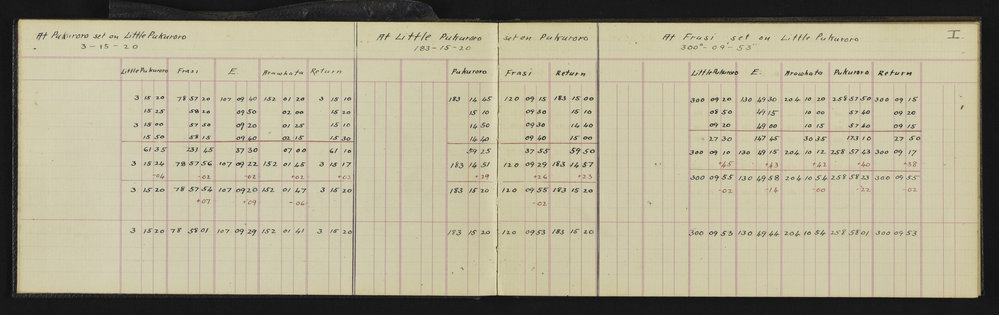 At Pukuroro set on Little Pukuroro
3-15-20
Little Pukuroro Frasi E. Arowhata Return
3 15 20 78 57 20 107 09 40 152 01 20 3 15 10
15 25 58 20 09 50 02 00 15 20
3 15 00 57 50 09 20 01 25 15 10
15 50 58 15 09 40 02 15 15 30
61 35 231 45 37 30 07 00 61 10
3 15 24 78 57 56 107 09 22 152 01 45 3 15 17
-04 -02 -02 +02 +03
3 15 20 78 57 54 107 09 20 152 01 47 3 15 20
+07 +09 -06
3 15 20 78 58 01 107 09 29 152 01 41 3 15 20
At Little Pukuroro set on Pukuroro
183-15-20
Pukuroro Frasi Return
183 14 45 120 09 15 183 15 00
15 10 09 30 15 10
14 50 09 30 14 40
14 40 09 40 15 00
59 25 37 55 59 50
183 14 51 120 09 29 183 14 57
+29 +26 +23
183 15 20 120 09 55 183 15 20
-02
183 15 20 120 09 53 183 15 20
At Frasi set on Little Pukuroro
300°-09'-53"
I
Little Pukuroro E. Arowhata Pukuroro Return
300 09 20 130 49 30 204 10 20 258 57 50 300 09 15
08 50 49 15 10 00 57 40 09 20
09 20 49 00 10 15 57 40 09 15
27 30 147 45 30 35 173 10 27 50
300 09 10 130 49 15 204 10 12 258 57 43 300 09 17
+45 +43 +42 +40 +38
300 09 55 130 49 58 204 10 54 258 58 23 300 09 55
-02 -14 -00 -22 -02
300 09 53 130 49 44 204 10 54 258 58 01 300 09 53